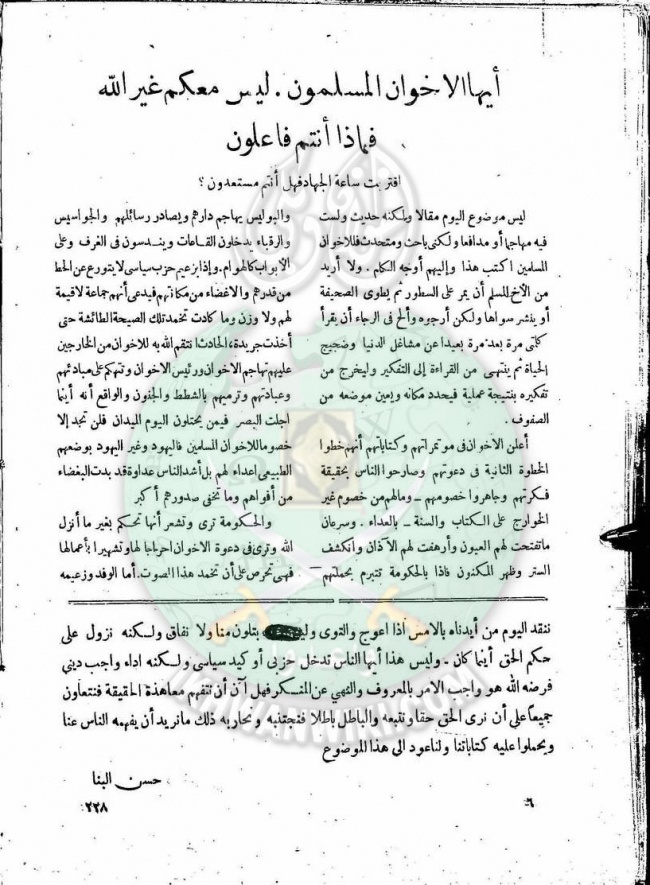 أيها الاخوان المسلمون . ليس معكم غير الله
فماذا أنتم فاعلون
اقتربت ساعة الجهاد فهل أنتم مستعدون ؟
ليس موضوع اليوم مقالا ولكنه حديث ولست
فيه مهاجما أو مدافعا ولكنى باحث ومتحدث فللاخوان
المسلمين اكتب هذا واليهم أوجه الكلام . ولا أريد
من الأخ المسلم أن يمر على السطور ثم يطوى الصحيفة
أو ينشر سواها ولكن أرجوه وألح فى الرجاء أن يقرأ
كلمتى مرة بعد مرة بعيدا عن مشاغل الدنيا وضجيج
الحياة ثم ينتهى من القراءة إلى التفكير وليخرج من
تفكيره بنتيجة عملية فيحدد مكانه ويعين موضعه من
الصفوف .
أعلن الاخوان فى مؤتمراتهم وكتاباتهم أنهم خطوا
الخطوة الثانية فى دعوتهم وصارحوا الناس بحقيقة
فكرتهم وجاهروا خصومهم ــ ومالهم من خصوم غير
الخوارج على الكتاب والسنة ــ بالعداء . وسرعان
ماتفتحت لهم العيون وأرهفت لهم الآذان وانكشف
الستر وظهر المكنون فاذا بالحكومة تتبرم بحملتهم
والبوليس يهاجم دارهم ويصادر رسائلهم والجواسيس
والرقباء يدخلون القاعات ويندسون فى الغرف وعلى
الأبواب كالهوام . وإذا بزعيم حزب سياسى لا يتورع عن الحط
من قدرهم والاغضاء من مكانتهم فيدعى أنهم جماعة لاقيمة
لهم ولا وزن وما كادت تخمد تلك الصيحة الطائشة حتى
أخذت جريدة الحادث انتقم الله به للاخوان من الخارجين
عليهم تهاجم الاخوان ورئيس الاخوان وتتهكم على مبادئهم
وعبادتهم وترميهم بالشطط والجنون والواقع أنه أينما
اجلت البصر فيمن يحتلون اليوم الميدان فلن تجد إلا
خصوما للاخوان المسلمين فاليهود وغير اليهود بوضعهم
الطبيعى اعداء لهم بل أشد الناس عداوة قد بدت البغضاء
من أفواههم وما تخفى صدورهم أكبر
والحكومة ترى وتشعر أنها تحكم بغير ما أنزل
الله وترى فى دعوة الاخوان احراجا لها وتشهيرا بأعمالها
فهى تحرص على أن تخمد هذا الصوت . أما الوفد وزعيمه
ننقد اليوم من أيدناه بالامس اذا اعوج والتوى بتلون منا ولا نفاق ولكنه نزول على
حكم الحق أينما كان ــ وليس هذا أيها الناس تدخل حزبى أو كيد سياسى ولكنه اداء واجب دينى
فرضه الله هو واجب الامر بالمعروف والنهى عن المنكر فهل آن أن تتفهم معاهذة الحقيقة فنتعاون
جميعا على أن نرى الحق حقا ونتبعه والباطل باطلا فنجتنبه ونحاربه ذلك مانريد أن يفهمه الناس عنا
ويحملوا عليه كتاباتنا ولنا عود الى هذا الموضوع
حسن البنا
٦
٢٢٨
IKHWANWIKI.COM